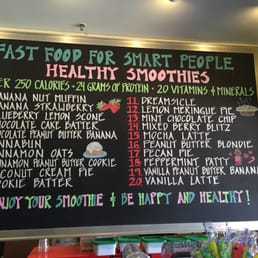 FAST FOOD FOR SMART PEOPLE
HEALTHY SMOOTHIES
ER 250 CALORIES - 24 GRAMS OF PROTEIN - 20 VITAMINS & MINERALS
BANANA NUT MUFFIN
BANANA STRAWBERRY
BLUEBERRY LEMON SCONE
CHOCOLATE CAKE BATTER
CHOCOLATE PEANUT BUTTER BANANA
CINNABUN
CINNAMON OATS
CINNAMON PEANUT BUTTER COOKIE
COCONUT CREAM PIE
COOKIE BATTER
11 DREAMSICLE
12 LEMON MERINGUE PIE
13 MINT CHOCOLATE CHIP
14 MIXED BERRY BLITZ
15 MOCHA LATTE
16 PEANUT BUTTER BLONDIE
17 PECAN PIE
18 PEPPERMINT PATTY
19 VANILLA PEANUT BUTTER BANANA
20 VANILLA LATTE
ENJOY YOUR SMOOTHIE & BE HAPPY AND HEALTHY!